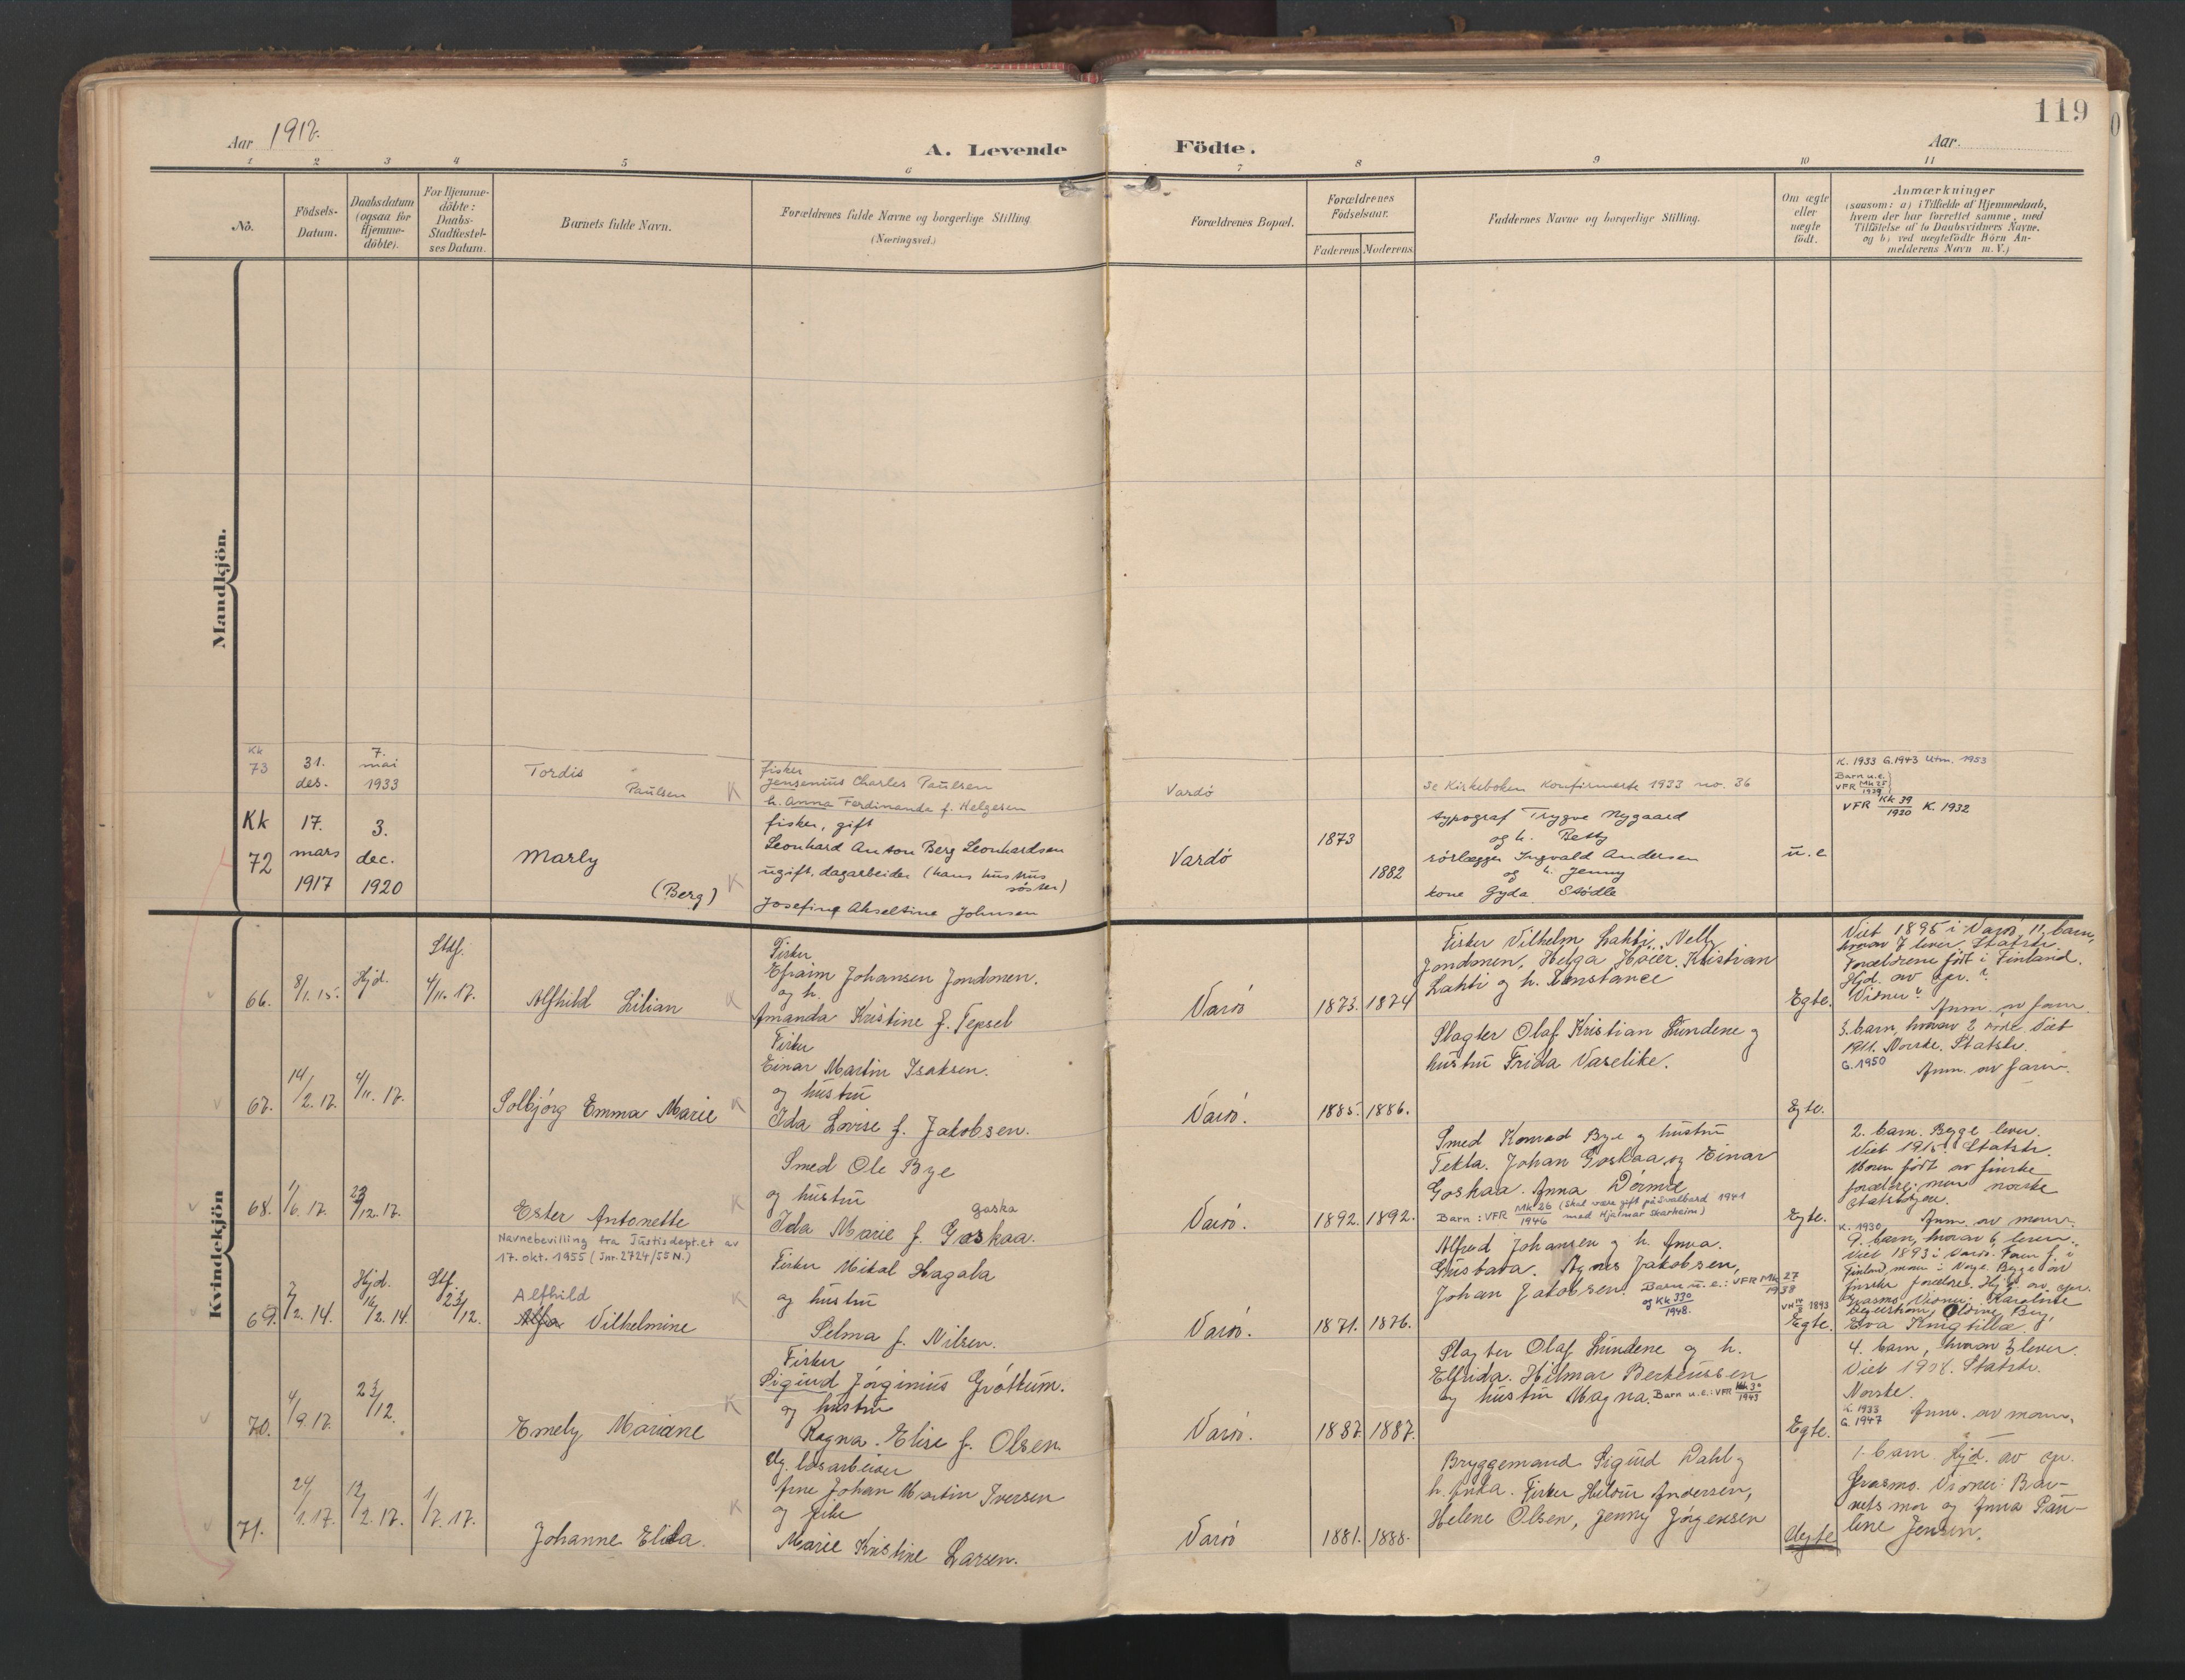 119
Aar 1917.
A. Levende Födte.
Aar.
1 2 3 4 5 6 7 8 9 10 11
No.
Födsels-Datum.
Daabsdatum (ogsaa for Hjemme-döbte).
For Hjemme-döbte: Daabs-Stadfæstel-ses Datum.
Barnets fulde Navn.
Forældrenes fulde Navne og borgerlige Stilling.
(Næringsvei.)
Forældrenes Bopæl.
Forældrenes Födselsaar.
Faderens Moderens
Faddernes Navne og borgerlige Stilling.
Om ægte eller uægte födt.
Anmærkninger
(saasom: a) i Tilfælde af Hjemmedaab,
hvem der har forrettet samme, med
Tilföielse af to Daabsvidners Navne.
og b) ved uægtefödte Börn An-
melderens Navn m. V.)
Mandkjön.
Kk 73
31. des.
7. mai 1933
Tordis
Paulsen K
fisker
Jensenius Charles Paulsen
h. Anna Ferdinanda f. Helgesen
Vardö
Se Kirkeboken Konfirmerte 1933 no. 36
K. 1933 G.1943 Utm. 1953
Barn u.e.
VFR Mk 25 1939
Kk 72
17. mars 1917
3. dec. 1920
Marly
(Berg) K
fisker, gift
Leonhard Anton Berg Leonhardsen
ugift, dagarbeider (hans hustrus söster)
Josefine Akseline Johnsen
Vardö
1873
1882
typograf Trygve Nygaard
og h. Betty
rörlægger Ingvald Andersen
og h. Jenny
kone Gyda Stödle
u.e
VFR Kk 39 1920 K. 1932
Kvindekjön
66.
8/1. 15.
Hjd.
Stdf. 4/11. 17.
Alfhild Lilian K
Fisker
Efraim Johansen Jondonen.
og h.
Amanda Kristine f. Tepsel
Vardö
1873. 1874
Fisker Vilhelm Lahti, Nelly
Jondonen, Helga Høier, Kristian
Lahti og h. Konstance
Egte.
Viet 1895 i Vardö, 11 barn,
hvorav 7 lever. Statsk.
Forældrene født i Finland.
Hjd. av
Vidner
Anm. av faren
67.
14/2. 17.
4/11. 17.
Solbjörg Emma Marie K
Fisker
Einar Martin Isaksen.
og hustru
Ida Lovise f. Jakobsen.
Vardö.
1885. 1886.
Slagter Olaf Kristian Lundene og
hustru Frida Vaselike.
Egte.
3. barn, hvorav 2 døde. Viet
1911. Norske. Statsk.
G. 1950
Anm. av faren.
68.
1/6. 17.
23/12. 17.
Ester Antonette K
Smed Ole Bye
og hustru
Gaska
Ida Marie f. Goskaa.
Vardö.
1892. 1892.
Smed Konrad Bye og hustru
Tekla. Johan Goskaa og Einar
Goskaa. Anna Dørmel
Barn: VFR Mk 26 1946 (Skal være gift på Svalbard 1941
med Hjalmar Skarheim)
Egte.
2. barn. Begge lever.
Viet 1915. Statsk.
Moren født av finske
forældre, men norske
statsborgere.
K. 1930
Anm. av moren.
Navnebevilling fra Justisdept.et av
17. okt. 1955 (Jnr. 2724/55 N.)
69.
2/2. 14.
Hjd. 16/2. 14.
Stf. 23/12.
Alfhild
Alfa Vilhelmine K
Fisker Mikal Hagala
og hustru
Selma f. Nilsen.
Vardö.
1871. 1876.
Alfred Johansen og h. Anna.
Gustava. Agnes Jakobsen,
Johan Jakobsen.
Barn u.e.: VFR Mk 27 1938
og Kk 330 1948.
Egte.
9. barn, hvorav 6 lever.
Viet 1893 i Vardö. Faren f. i
Finland, moren i Norge. Begge av
finske forældre. Hjd. av
Grasmo. Vidner: Karoline
Eva
70.
4/9. 17.
23/12.
Emely Mariane K
Fisker
Sigurd Jörginius Gröttum.
og hustru
Ragna Elise f. Olsen.
Vardö.
1887. 1887.
Slagter Olaf Lundene og h.
Elfrida. Hilmar Berteussen
og hustru Magna. Barn u.e.: VFR Mk 30 1943
Egte.
4. barn, hvorav 3 lever.
Statsk.
Norske.
K. 1933
G. 1947
Anm. av moren.
71.
24/1. 17.
12/2. 17.
1/7. 17.
Johanne Elida. K
Ug. løsarbeider
Arne Johan Martin Iversen
og pike
Marie Kristine Larsen.
Vardö
1881. 1888.
Bryggemand Sigurd Dahl og
h. Anka. Fisker Hildur Andersen,
Helene Olsen, Jenny Jørgensen
Uegte
1. barn. Hjd. av
Grasmo. Vidner: Bar-
nets mor og Anna Pau-
line Jensen.